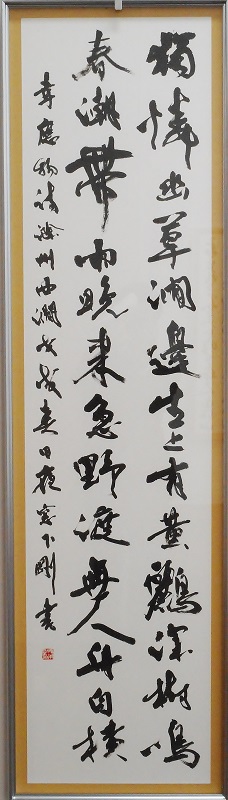 獨憐幽草澗邊生上有黄鸝深樹鳴
春潮帶雨晚来急野渡無人舟自横
韋應物詩滁州西澗 春日夜窓下剛書